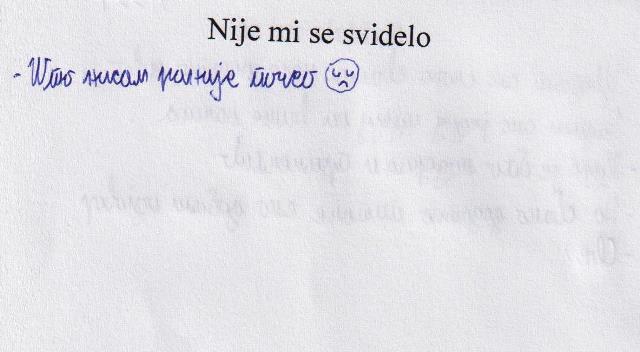 Nije mi se svidelo
- Што нисам раније почео